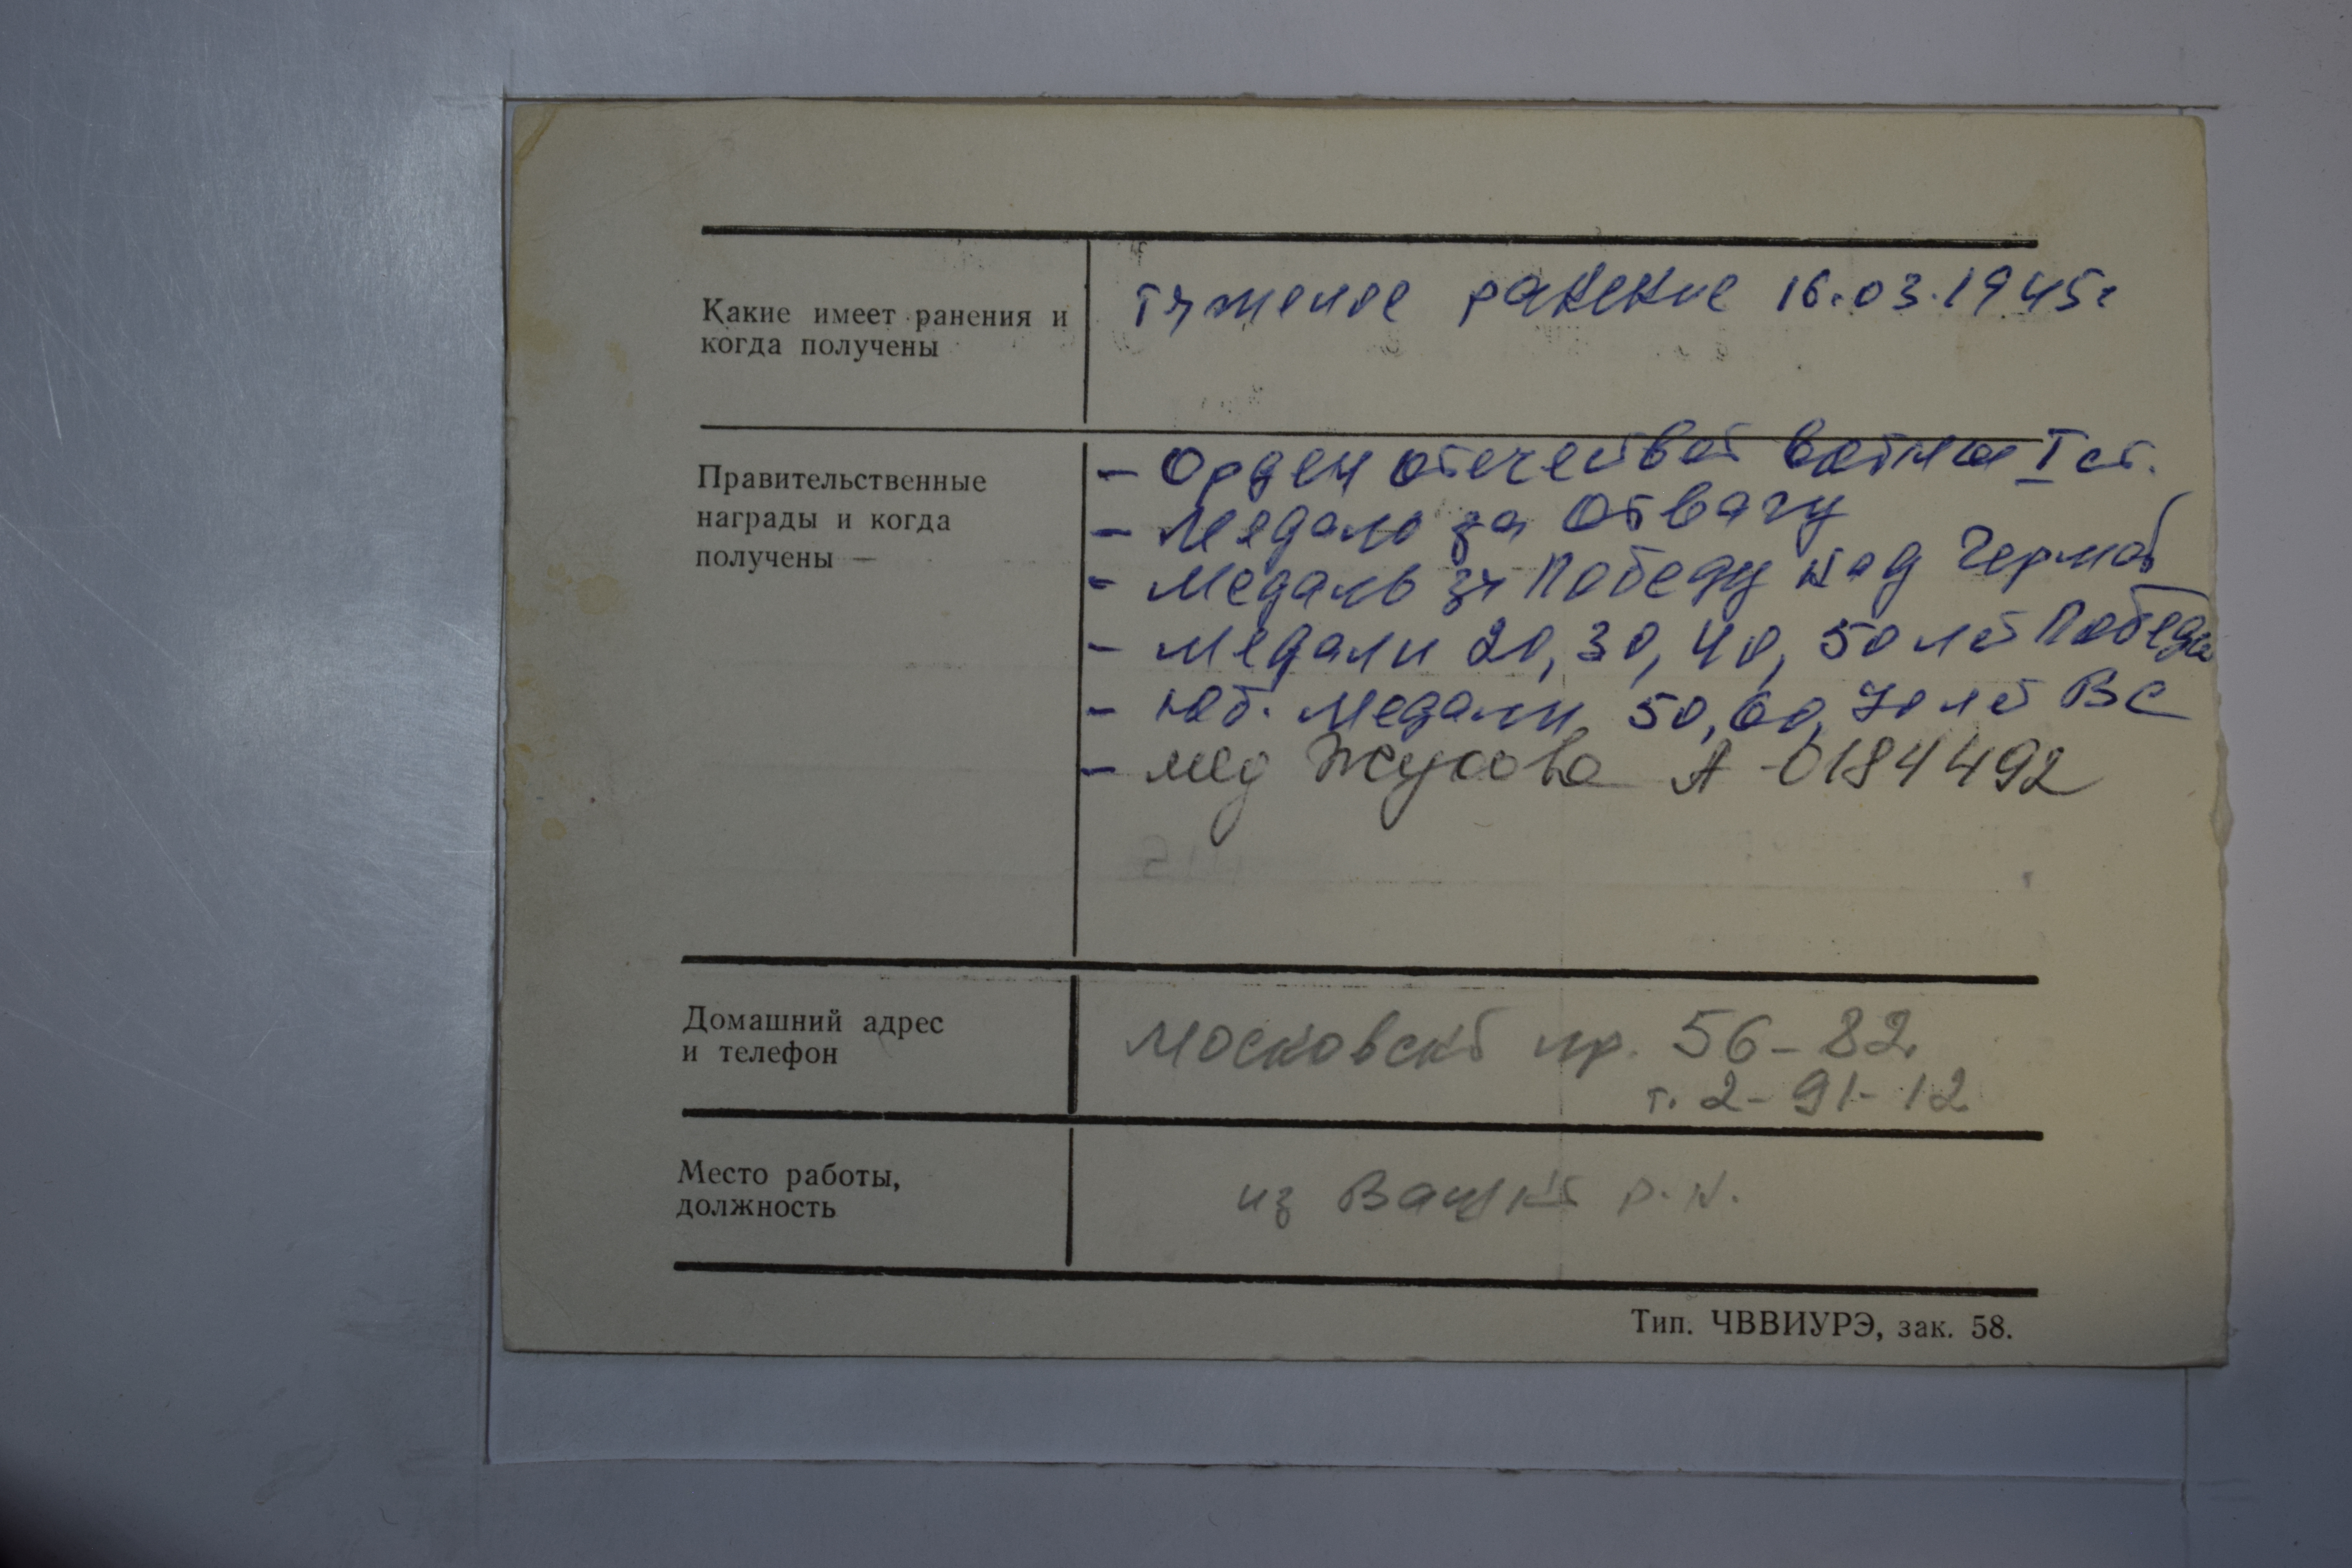 Какие имеет ранения и
когда получены
тяжелое ранение 16.03.1945г
Правительственные
награды и когда
получены —
- Орден отечествой войны I ст.
- Медаль за Отвагу
- Медаль за Победу над Герма
- Медали 20, 30, 40, 50 лет Победы
- Юб. Медали 50, 60, 70 лет ВС
- мед Жукова А-0184492
Домашний адрес
и телефон
Московский пр. 56-82
т. 2-91-12
Место работы,
должность
из р.н.
Тип. ЧВВИУРЭ, зак. 58.